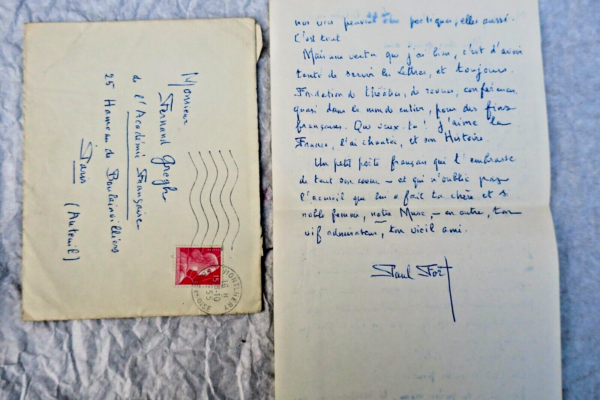 Monsieur
Fernand Gregh
de l'Académie Française
25 Hameau de Boulainvilliers
Paris
(Auteuil)
MONTLHERY
nos vies peuvent être poétiques, elles aussi.
C'est tout.
Mais une vertu que j'ai bien, c'est d'avoir
tenté de servir les Lettres, et toujours.
Fondation de théâtres, de revues, conférences
quasi dans le monde entier, pour des fins
françaises. Que veux-tu! J'aime la
France, l'ai chantée, et son Histoire.
Un petit poète français qui t'embrasse
de tout son cœur – et qui n'oublie pas
l'accueil que lui a fait ta chère et si
noble femme, notre Muse, – en outre, ton
vif admirateur, ton vieil ami.
Paul Fort